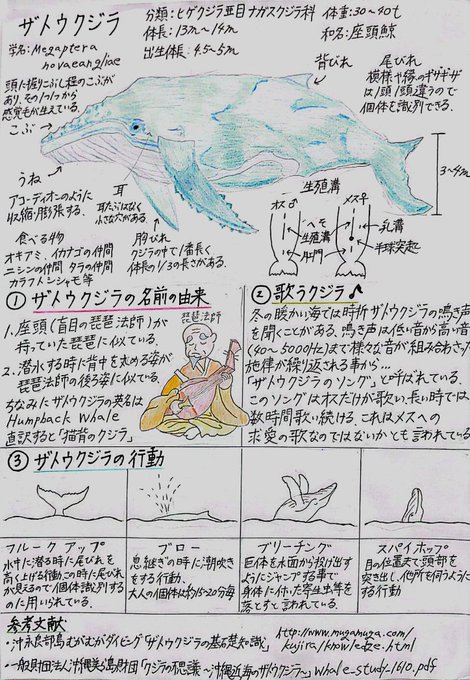 ザトウクジラ
学名:Megaptera
novaeangliae
分類:ヒゲクジラ亜目ナガスクジラ科
体長:13m~14m
出生体長:4.5~5m
体重:30~40t
和名:座頭鯨
頭に握りこぶし程のこぶが
あり、その1つ1つから
感覚毛が生えている。
こぶ
背びれ
尾びれ
模様や縁のギザギザ
は1頭1頭違うので
個体を識別できる。
3~4m
うね
アコーディオンのように
収縮・膨張する。
耳
耳たぶはなく
小さな穴がある。
胸びれ
クジラの中で1番長く
体長の1/3の長さがある。
食べる物
オキアミ、イカナゴの仲間
ニシンの仲間 タラの仲間
カラフトシシャモ等
生殖溝
オス♂
メス♀
へそ
生殖溝
肛門
乳溝
半球突起
① ザトウクジラの名前の由来
1.座頭(盲目の琵琶法師)が
持っていた琵琶に似ている。
2.潜水する時に背中を丸める姿が
琵琶法師の後ろ姿に似ている。
ちなみにザトウクジラの英名は
Humpback Whale
直訳すると「猫背のクジラ」
琵琶法師
② 歌うクジラ♪
冬の暖かい海では時折ザトウクジラの鳴き声
を聞くことがある。鳴き声は低い音から高い音
(40~5000Hz)まで様々な音が組み合わさり
旋律が繰り返される事から…
「ザトウクジラのソング」と呼ばれている。
このソングはオスだけが歌い、長い時では
数時間歌い続ける。これはメスへの
求愛の歌なのではないかとも言われている
③ ザトウクジラの行動
フルークアップ
水中に潜る時に尾びれを
高く上げる行動この時に尾びれ
が見えるので個体識別する
のに用いられている。
ブロー
息継ぎの時に潮吹き
をする行動。
大人の個体は約15~20分毎
ブリーチング
巨体を水面から投げ出す
ようにジャンプする事で
身体に付いた寄生虫等を
落とすと言われている。
スパイホップ
目の位置まで頭部を
突き出し、他所を伺うように
する行動
参考文献
・沖永良部島むがむがダイビング「ザトウクジラの基礎知識」
http://www.mugamuga.com/
kujira/knowledge.html
・一般財団法人沖縄美ら島財団「クジラの不思議~沖縄近海のザトウクジラ~」whale-study-1610.pdf